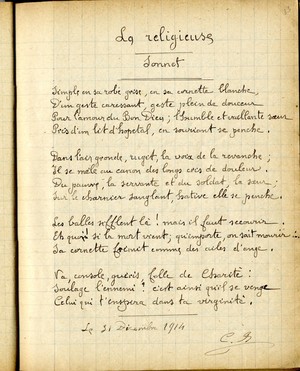 La religieuse
Sonnet
Simple en sa robe grise, en sa cornette blanche,
D'un geste caressant, geste plein de douceur
Pour l'amour du Bon Dieu; l'humble et vaillante sœur
Près d'un lit d'hopital, en souriant se penche.
Dans l'air gronde, rugit, la voix de la revanche;
Il se mêle au canon des longs cris de douleur.
Du pauvre, la servante et du soldat, la sœur;
Sur le charnier sanglant, hative elle se penche.
Les balles sifflent là! mais il faut secourir.
Et quoi! si la mort vient, qu'importe, on sait mourir...
Sa cornette frémit comme des ailes d'ange.
Va, console, guéris, folle de Charité!
Soulage l'ennemi! c'est ainsi qu'il se venge
Celui qui t'inspira dans ta virginité.
Le 31 Décembre 1914